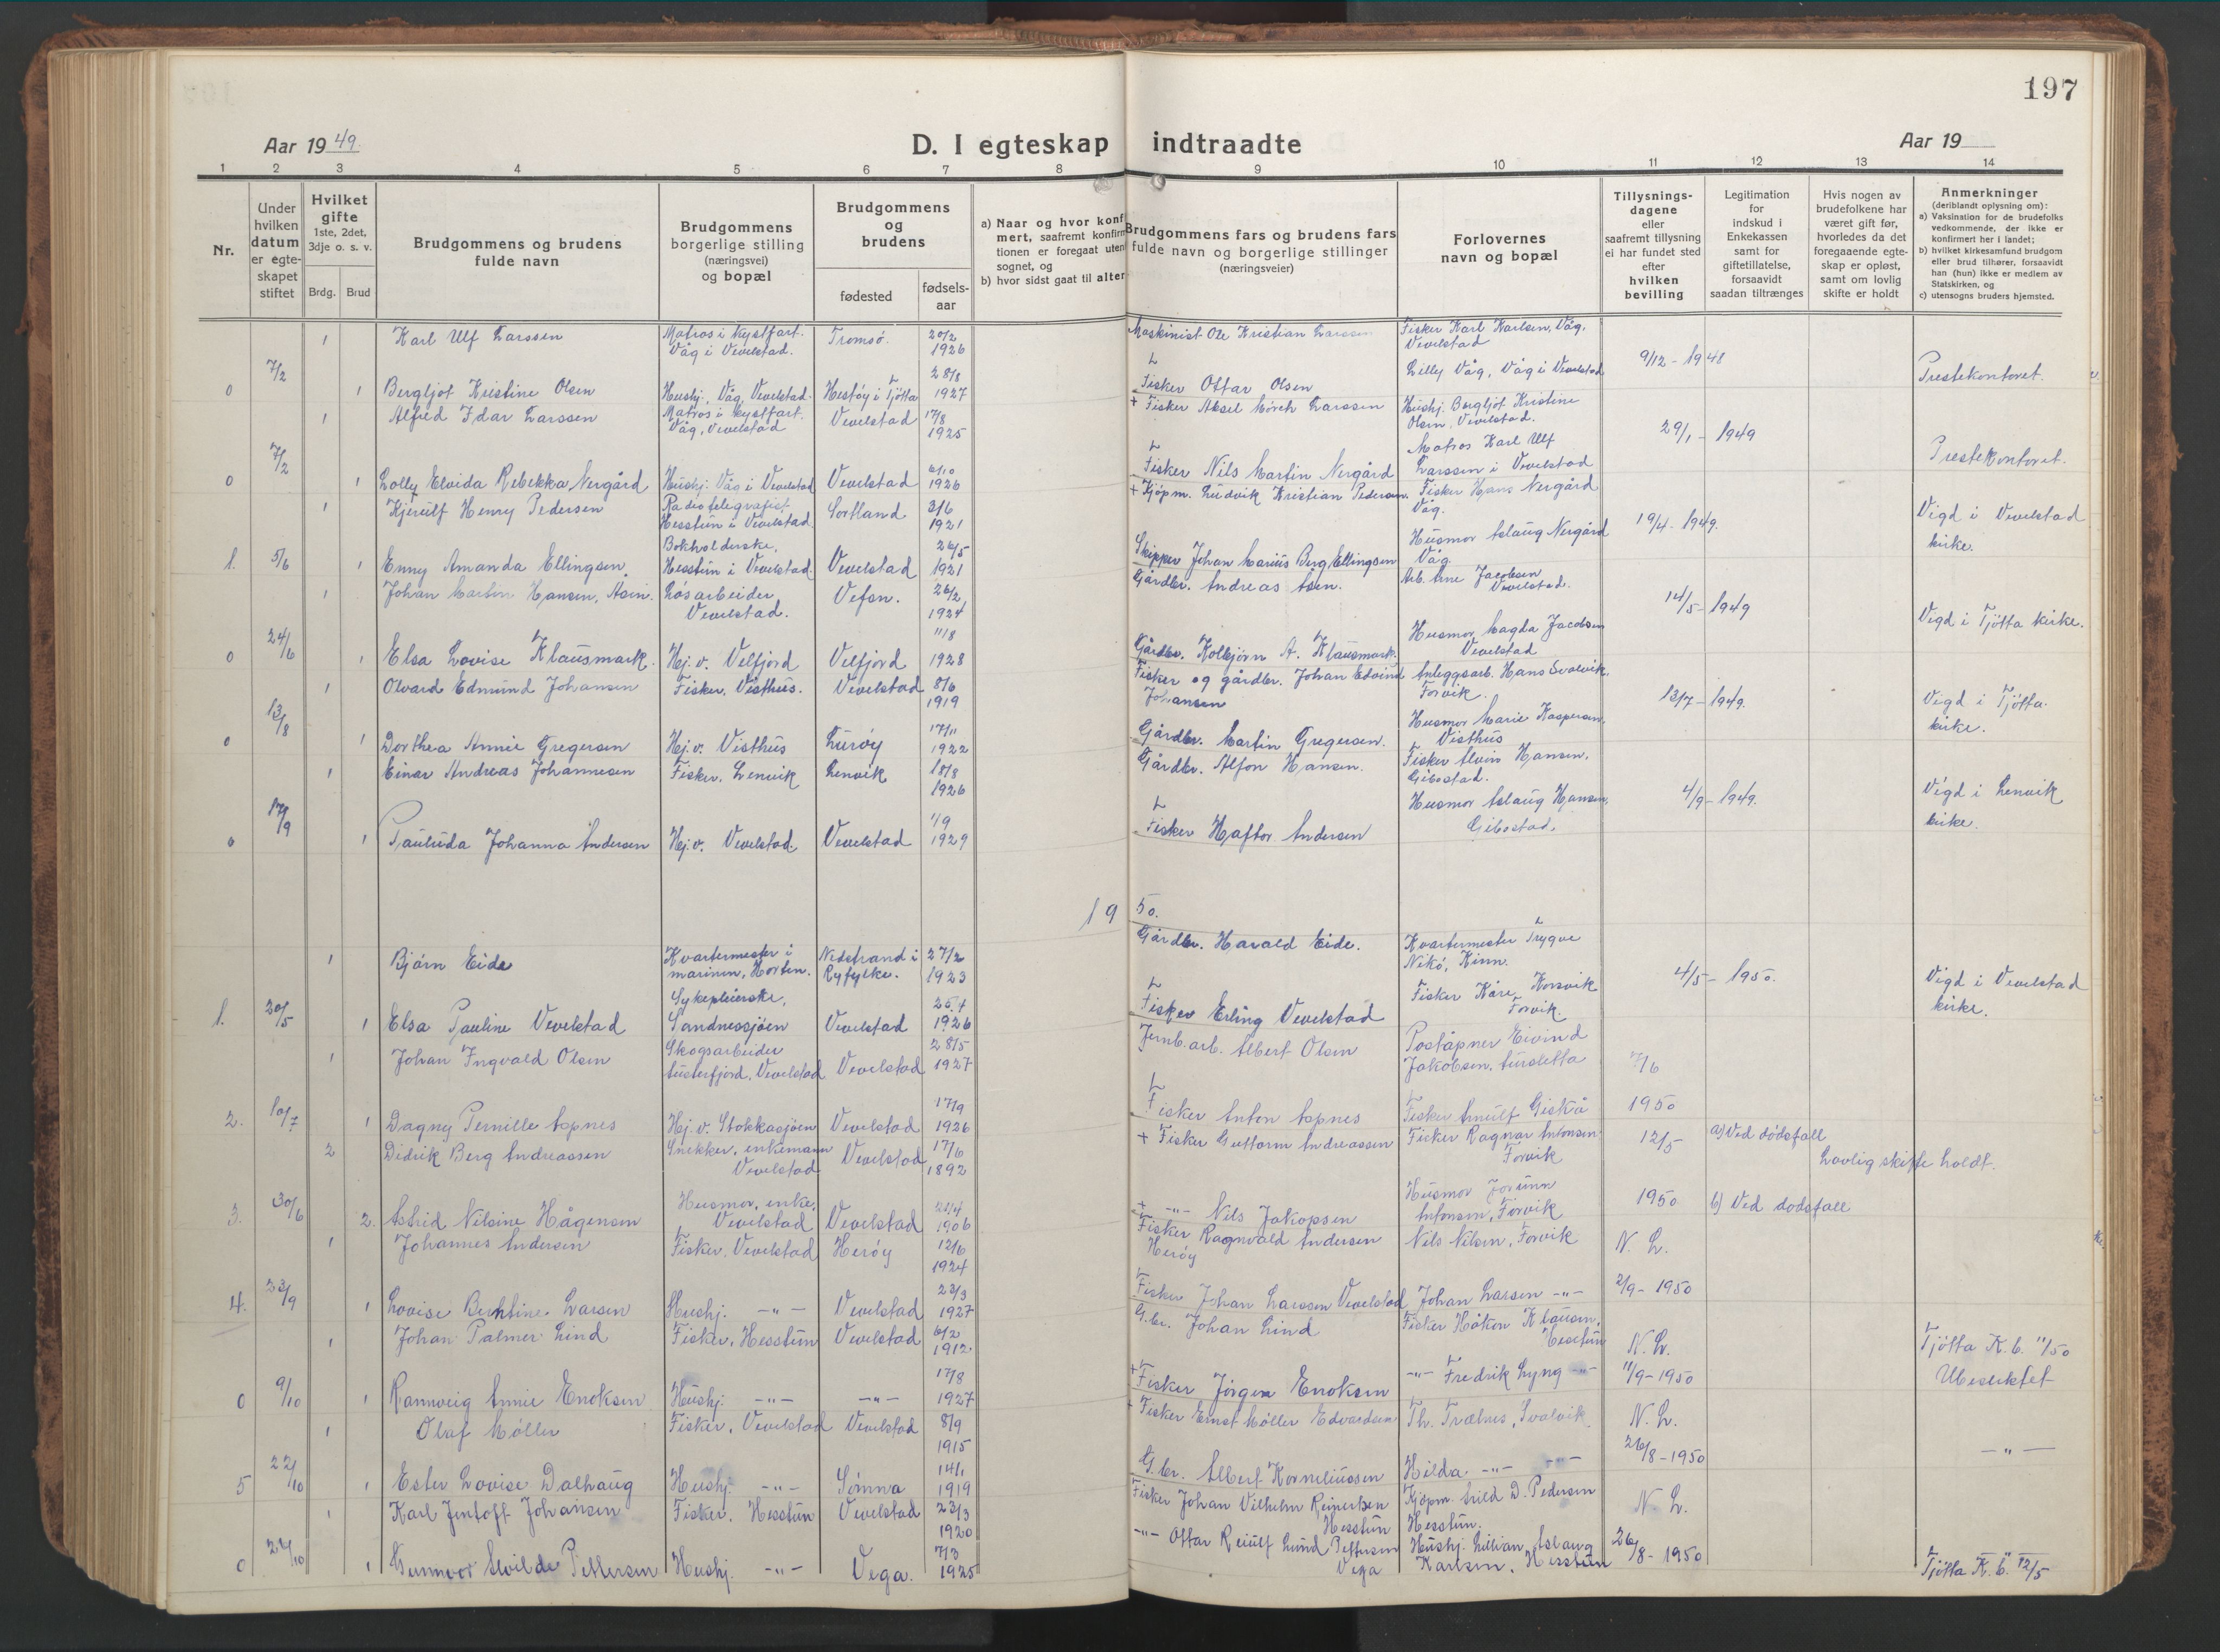 197
Aar 19 49.
D. I egteskap indtraadte
Aar 19
1 2 3 4 5 6 7 8 9 10 11 12 13 14
Nr.
Under hvilken datum er egte-skapet stiftet
Hvilket gifte 1ste, 2det, 3dje o. s. v.
Brdg. Brud
Brudgommens og brudens fulde navn
Brudgommens borgerlige stilling (næringsvei) og bopæl
Brudgommens og brudens
fødested
fødsels-aar
a) Naar og hvor konf
mert, saafremt konfirm
tionen er foregaat uten
sognet, og
b) hvor sidst gaat til alter
Brudgommens fars og brudens fars
fulde navn og borgerlige stillinger
(næringsveier)
Forlovernes
navn og bopæl
Tillysnings-
dagene
eller
saafremt tillysning
ei har fundet sted
efter
hvilken
bevilling
Legitimation
for
indskud i
Enkekassen
samt for
giftetillatelse,
forsaavidt
saadan tiltrænges
Hvis nogen av
brudefolkene har
været gift før,
hvorledes da det
foregaaende egte-
skap er opløst,
samt om lovlig
skifte er holdt
Anmerkninger
(deriblandt oplysning om):
a) Vaksination for de brudefolks
vedkommende, der ikke er
konfirmert her i landet;
b) hvilket kirkesamfund brudgom
eller brud tilhører, forsaavidt
han (hun) ikke er medlem av
Statskirken, og
c) utensogns bruders hjemsted.
1 Karl Ulf Larssen Matros i kystfart. Våg i Vevelstad. Tromsø. 20/2 1926 Maskinist Ole Kristian Larssen Fisker Karl Karlsen, Våg, Vevelstad
0 7/2 1 Bergljot Kristine Olsen Hushj., Våg, Vevelstad. Hestøy i Tjøtta 28/8 1927 Fisker Ottar Olsen Lilly Våg, Våg i Vevelstad 9/12 - 1948 Prestekontoret.
1 Alfred Idar Larssen Matros i kystfart. Våg, Vevelstad Vevelstad 17/8 1925 + Fisker Aksel Mørch Larssen Hushj. Bergljot Kristine Olsen, Vevelstad.
0 7/2 1 Lolly Elvida Rebekka Nergård Hushj. Våg i Vevelstad Vevelstad 6/10 1926 Fisker Nils Martin Nergård Matros Karl Ulf Larssen i Vevelstad 29/1 - 1949 Prestekontoret.
1 Kjerulf Henry Pedersen Radiotelegrafist Hesstun i Vevelstad. Sortland 3/6 1921 + Kjøpm. Ludvik Kristian Pedersen. Fisker Hans Nergård Våg.
1. 5/6 1 Enny Amanda Ellingsen Bokholderske, Hesstun i Vevelstad. Vevelstad 26/5 1921 Skipper Johan Marius Berg Ellingsen Husmor Aslaug Nergård Våg. 19/4 - 1949. Vigd i Vevelstad kirke.
1 Johan Martin Hansen, Åsin. Løsarbeider, Vevelstad. Vefsn. 26/2 1924 Gårdbr. Andreas Åsen. Arb. Arne Jacobsen Vevelstad.
0 24/6 1 Elsa Lovise Klausmark. Hj. v. Velfjord Velfjord 11/8 1928 Gårdbr. Kolbjørn A. Klausmark. Husmor Magda Jacobsen Vevelstad 14/5 - 1949 Vigd i Tjøtta kirke.
1 Olvard Edmund Johansen Fisker, Visthus. Vevelstad 8/6 1919 Fisker og gårdbr. Johan Edvind Johansen Anleggsarb. Hans Svalvik, Forvik.
0 13/8 1 Dorthea Annie Gregersen Hj. v. Visthus Lurøy 17/11 1922 Gårdbr. Martin Gregersen. Husmor Marie Kaspersen. Visthus 13/7 - 1949. Vigd i Tjøtta kirke.
1 Einar Andreas Johannesen Fisker, Lenvik Lenvik 18/8 1926 Gårdbr. Alfon Hansen. Fisker Alvin Hansen, Gibostad.
0 17/9 1 Paulida Johanna Andersen Hj. v. Vevelstad. Vevelstad 1/9 1929 Fisker Haftor Andersen Husmor Aslaug Hansen, Gibostad. 4/9 - 1949. Vigd i Lenvik kirke.
1950.
1 Bjørn Eide Kvartermester i marinen, Horten. Nedstrand i Ryfylke. 27/2 1923 Gårdbr. Harald Eide. Kvartermester Trygve Nikø, Kinn.
1. 20/5 1 Elsa Pauline Vevelstad Sykepleierske, Sandnessjøen Vevelstad 25/4 1926 Fisker Erling Vevelstad Fisker Kåre Korsvik Forvik. 4/5 - 1950. Vigd i Vevelstad kirke.
1 Johan Ingvald Olsen Skogsarbeider Austerfjord, Vevelstad Vevelstad 28/5 1927 Jernb.arb. Albert Olsen Poståpner Eivind Jakobsen, Aursletta 7/6
2. 10/7 1 Dagny Pernille Aspnes Hj. v. Stokkasjøen Vevelstad 17/9 1926 Fisker Anton Aspnes Fisker Arnulf Giskå 1950
2 Didrik Berg Andreassen Snekker, enkemann Vevelstad Vevelstad 17/6 1892 + Fisker Guttorm Andreassen Fisker Ragnar Antonsen Forvik 12/5 a) Ved dødsfall Lovlig skifte holdt.
3. 30/6 2. Astrid Nilsine Hågensen Husmor, enke, Vevelstad Vevelstad 1906 + -"- Nils Jakopsen Husmor Jorunn Antonsen, Forvik 1950 b) Ved dødsfall
1 Johannes Andersen Fisker, Vevelstad Herøy 12/6 1924 Fisker Ragnvald Andersen Herøy Nils Nilsen, Forvik N. L.
4. 23/9 1 Lovise Berntine Larsen Hushj. -"- Vevelstad 23/3 1927 Fisker Johan Larssen Vevelstad Johan Larsen -"- 2/9 - 1950
1 Johan Palmer Lind Fisker, Hesstun Vevelstad 6/2 1912 G.br. Johan Lind Fisker Håkon Klausen, Hesstun N. L. Tjøtta K. b. 11/50
0 9/10 1 Rannveig Annie Enoksen Hushj. -"- -"- 17/8 1927 + Fisker Jørgen Enoksen -"- Fredrik Lyng -"- 11/9 - 1950 Ubesluktet
1 Olaf Møller Fisker, Vevelstad Vevelstad 8/9 1915 + Fisker Ernst Møller Edvardsen Th. Trælnes, Svalvik N. L.
5 22/10 1 Ester Lovise Dalhaug Hushj. -"- Sømna 14/1 1919 G.br. Albert Korneliussen Hilda -"- -"- 26/8 - 1950 -"-
1 Karl Jentoft Johansen Fisker, Hesstun Vevelstad 23/3 1920 Fisker Johan Vilhelm Reinertsen Hesstun Kjøpm. Arild D. Pedersen Hesstun. N. L.
0 1 Gunnvor Alvilde Pettersen Hushj. -"- Vega. 7/3 1925 -"- Ottar Reiulf Lund Pettersen Vega Hushj. Lillian Aslaug Karlsen, Hesstun 26/8 - 1950 Tjøtta K. b. 12/5